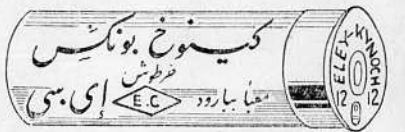 كينوخ بونكس
خرطوش
معبأ ببارود E.C إي سي
ELEY-KYNOCH
12 12